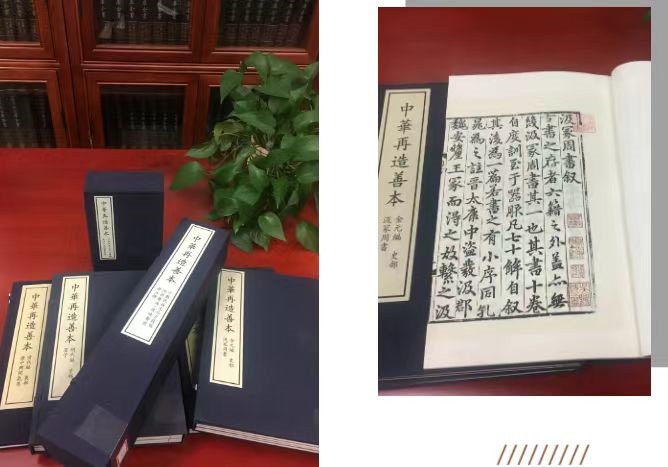 中華再造善本
中華再造善本
中華再造善本
中華再造善本
中華再造善本
金元編 史部
汲冢周書
中華再造善本
金元編 史部
汲冢周書
汲冢周書叙
書之存者六籍之外盖亦無
幾汲冢周書其一也其書十卷
自度訓至于器服凡七十解自叙
其後為一篇若書之有小序同孔
晁為之註晋太康中盜發汲郡
魏安釐王冢而得之故繫之汲